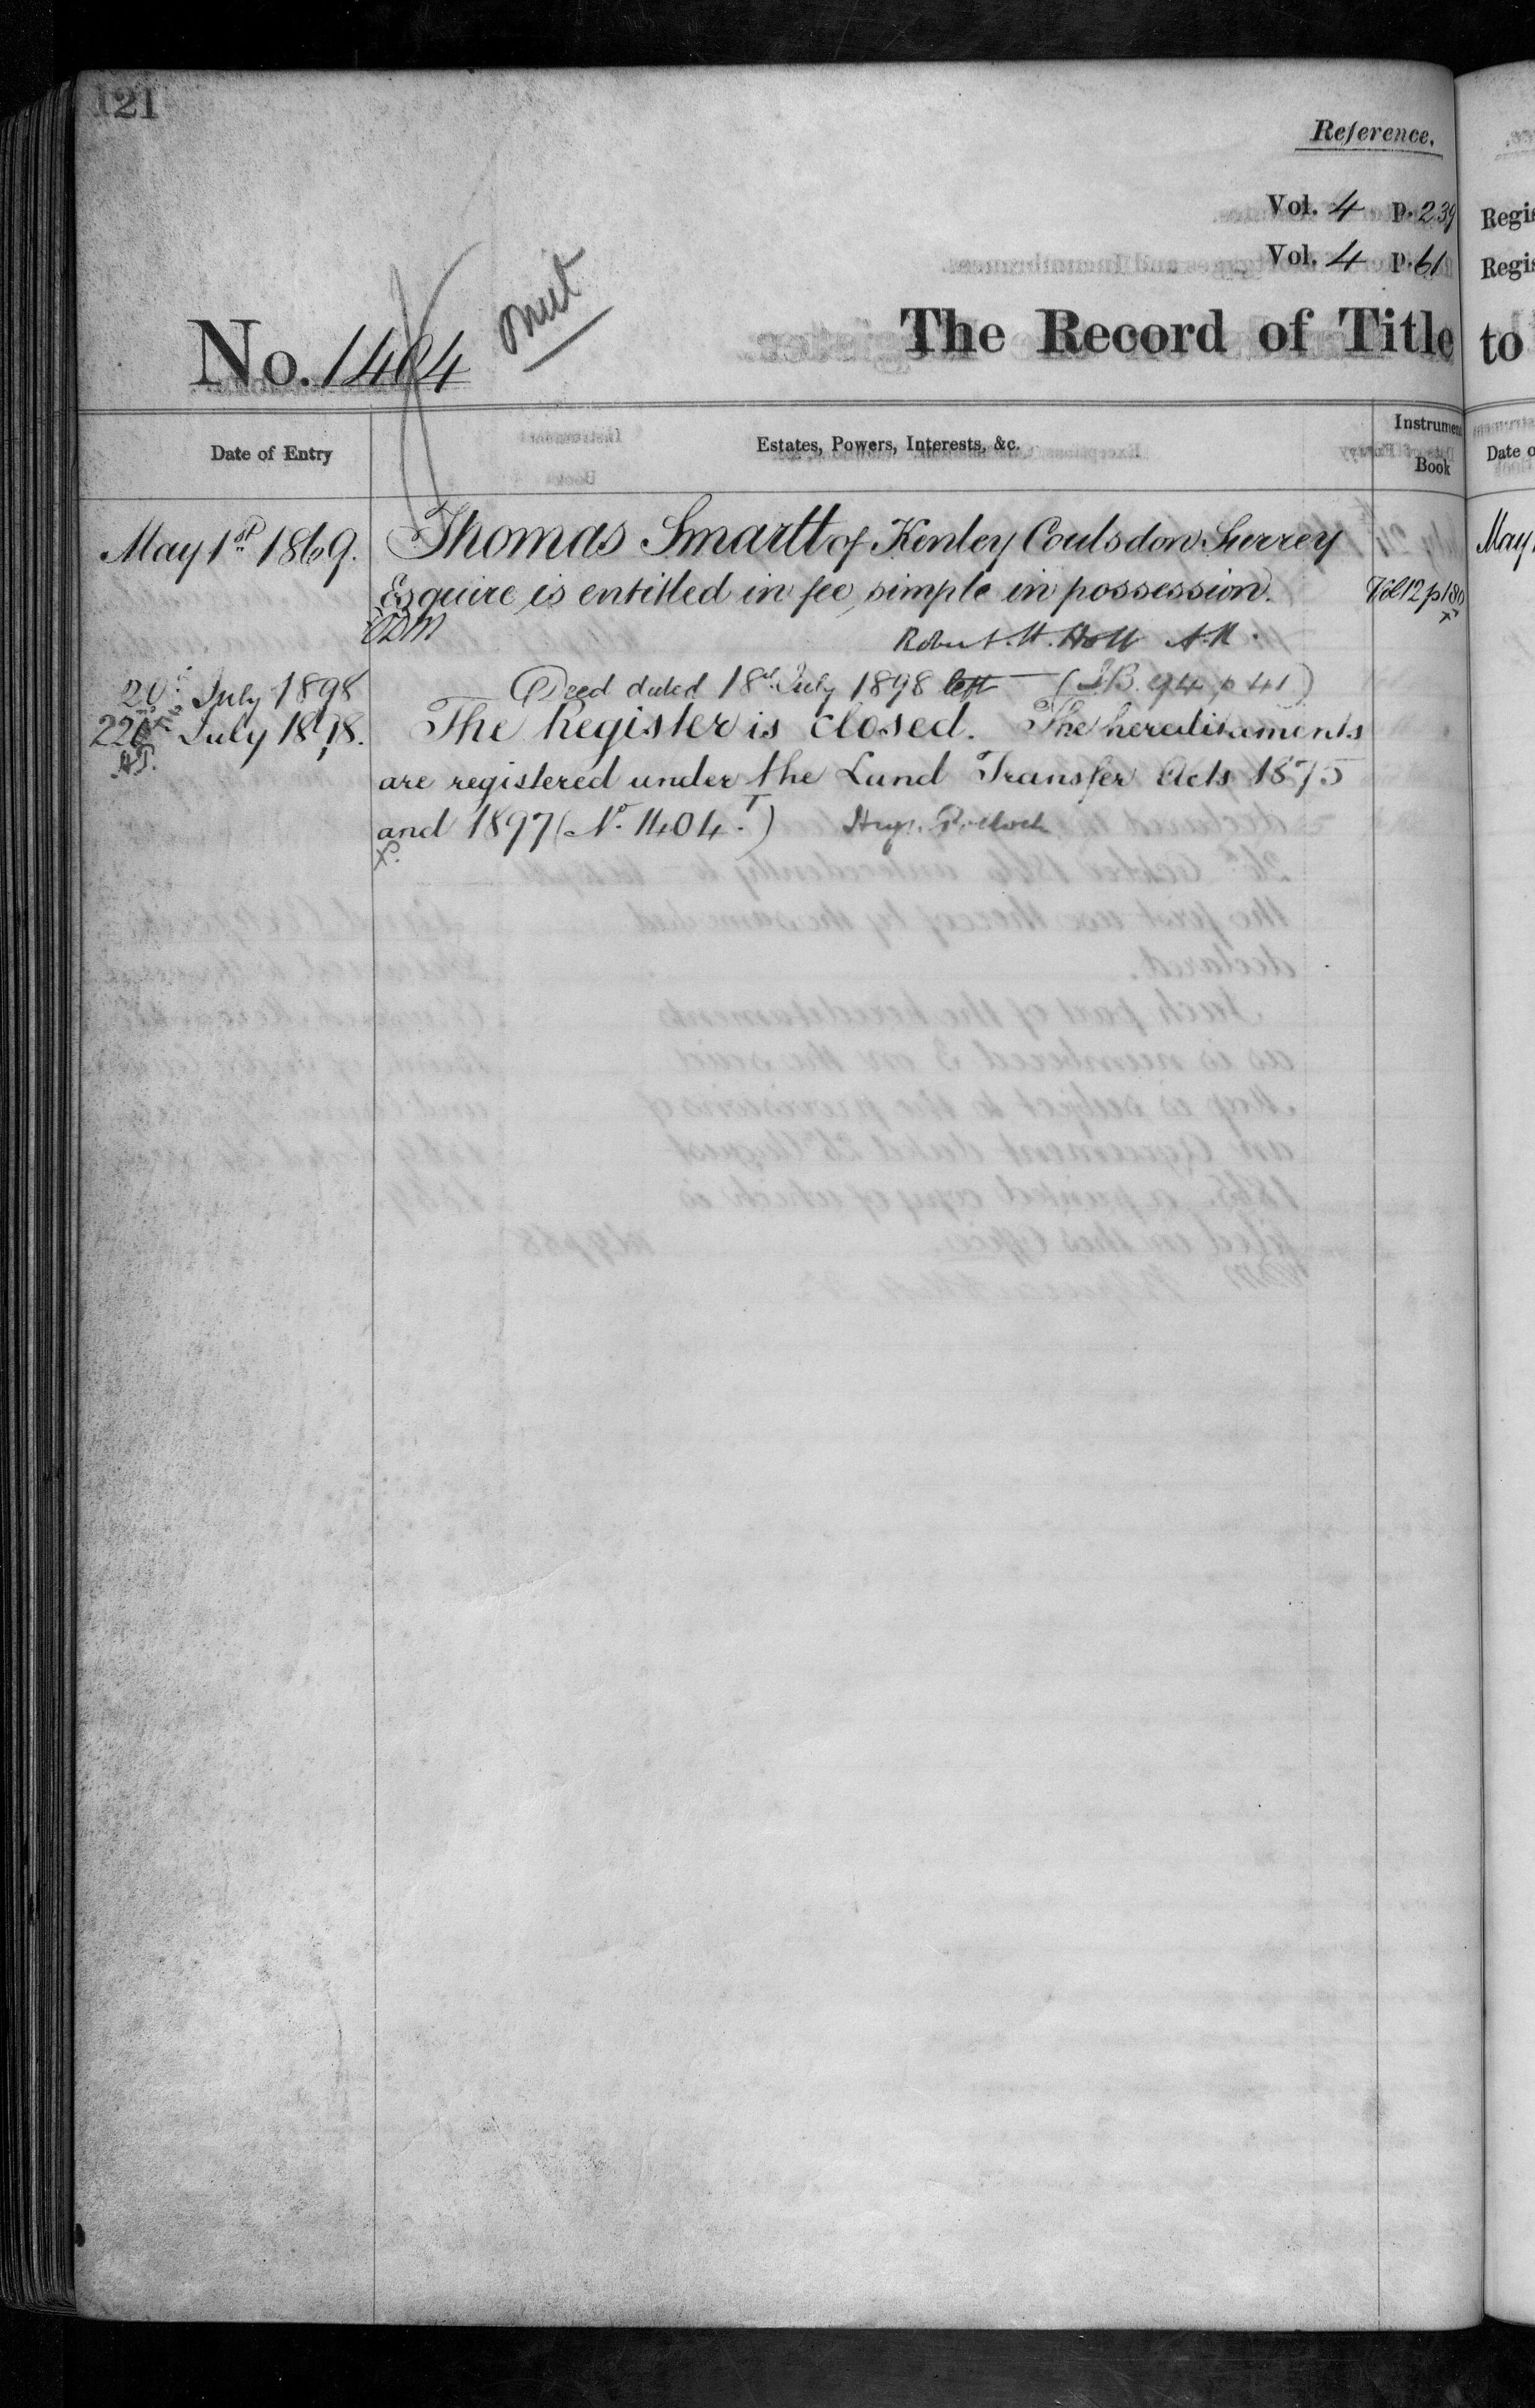 121
Reference.
Vol. 4 p. 239
Vol. 4 p. 61
No. 1404
omit
The Record of Title
Date of Entry
Estates, Powers, Interests, &c.
Instrument
Book
May 1st 1869. Thomas Smartt of Kenley Coulsdon Surrey
Esquire is entitled in fee simple in possession. Vol 12 p 180
Robert. H. Holt A.R.
20 July 1898 Deed dated 18th July 1898 left (I.B. 94 p 41)
22 July 1898. The Register is closed. The hereditaments
are registered under the Land Transfer Acts 1875
and 1897 (No. 1404.)
Regis
Regis
to
Date o
May